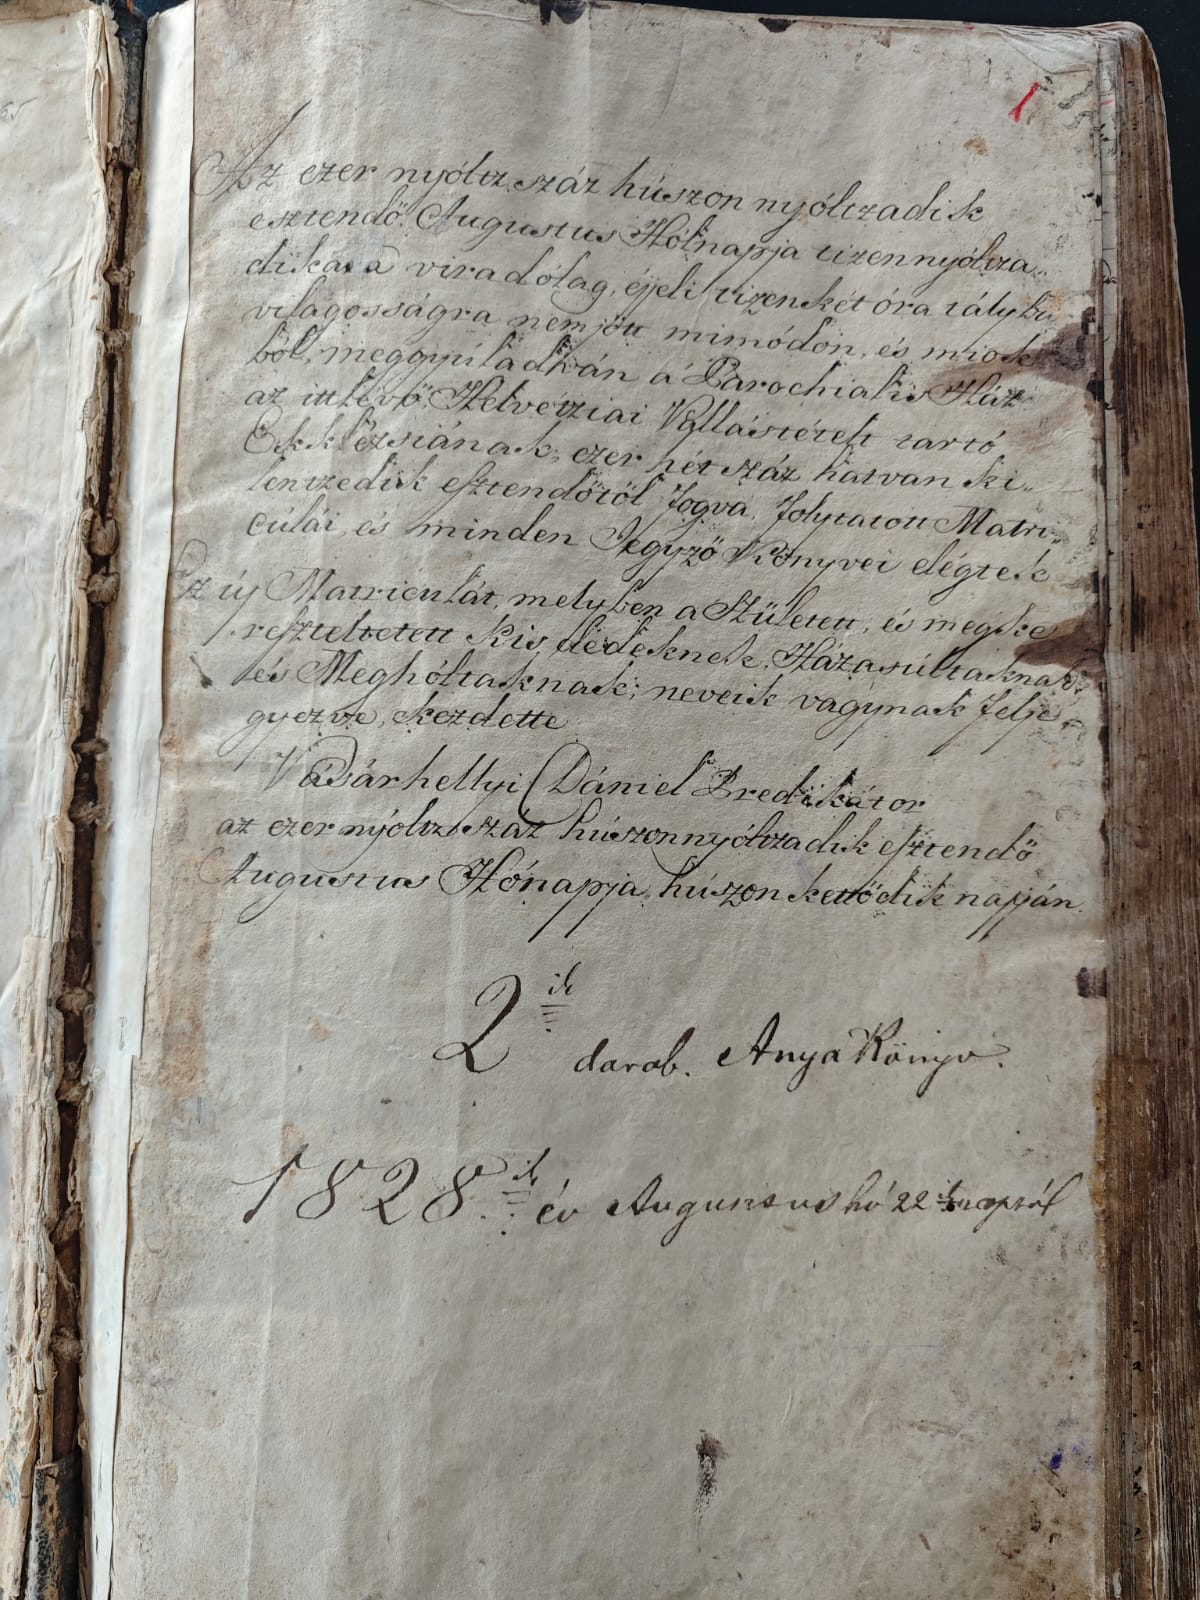 Az ezer nyóltz száz húszon nyóltzadik
esztendő Augustus Hólnapja tizennyóltza„
dikára viradólag, éjjeli tizenkét óra tálybu
világosságra nem jött mimódon, és miok
ból, meggyúladván a' Parochialis Ház
az ittlévő Helvetziai Vallástételt tartó
Ekklézsiának, ezer hét száz hatvan ki„
lentzedik esztendőtől fogva folytatott Matri„
culái, és minden Jegyző Könyvei elégtek
Ez új Matriculát, melyben a Született, és megke
reszteltetett kis dedeknek, Házasúltaknak
és Meghóltaknak; neveik vagynak felje„
gyezve, kezdette
Vásárhellyi Dániel Predikátor
az ezer nyóltz száz húszonnyóltzadik esztendő
Augustus Hónapja húszonkettődik napján.
2ik
darab. Anya Könyv.
1828ik év Augustus hó 22 napról
1